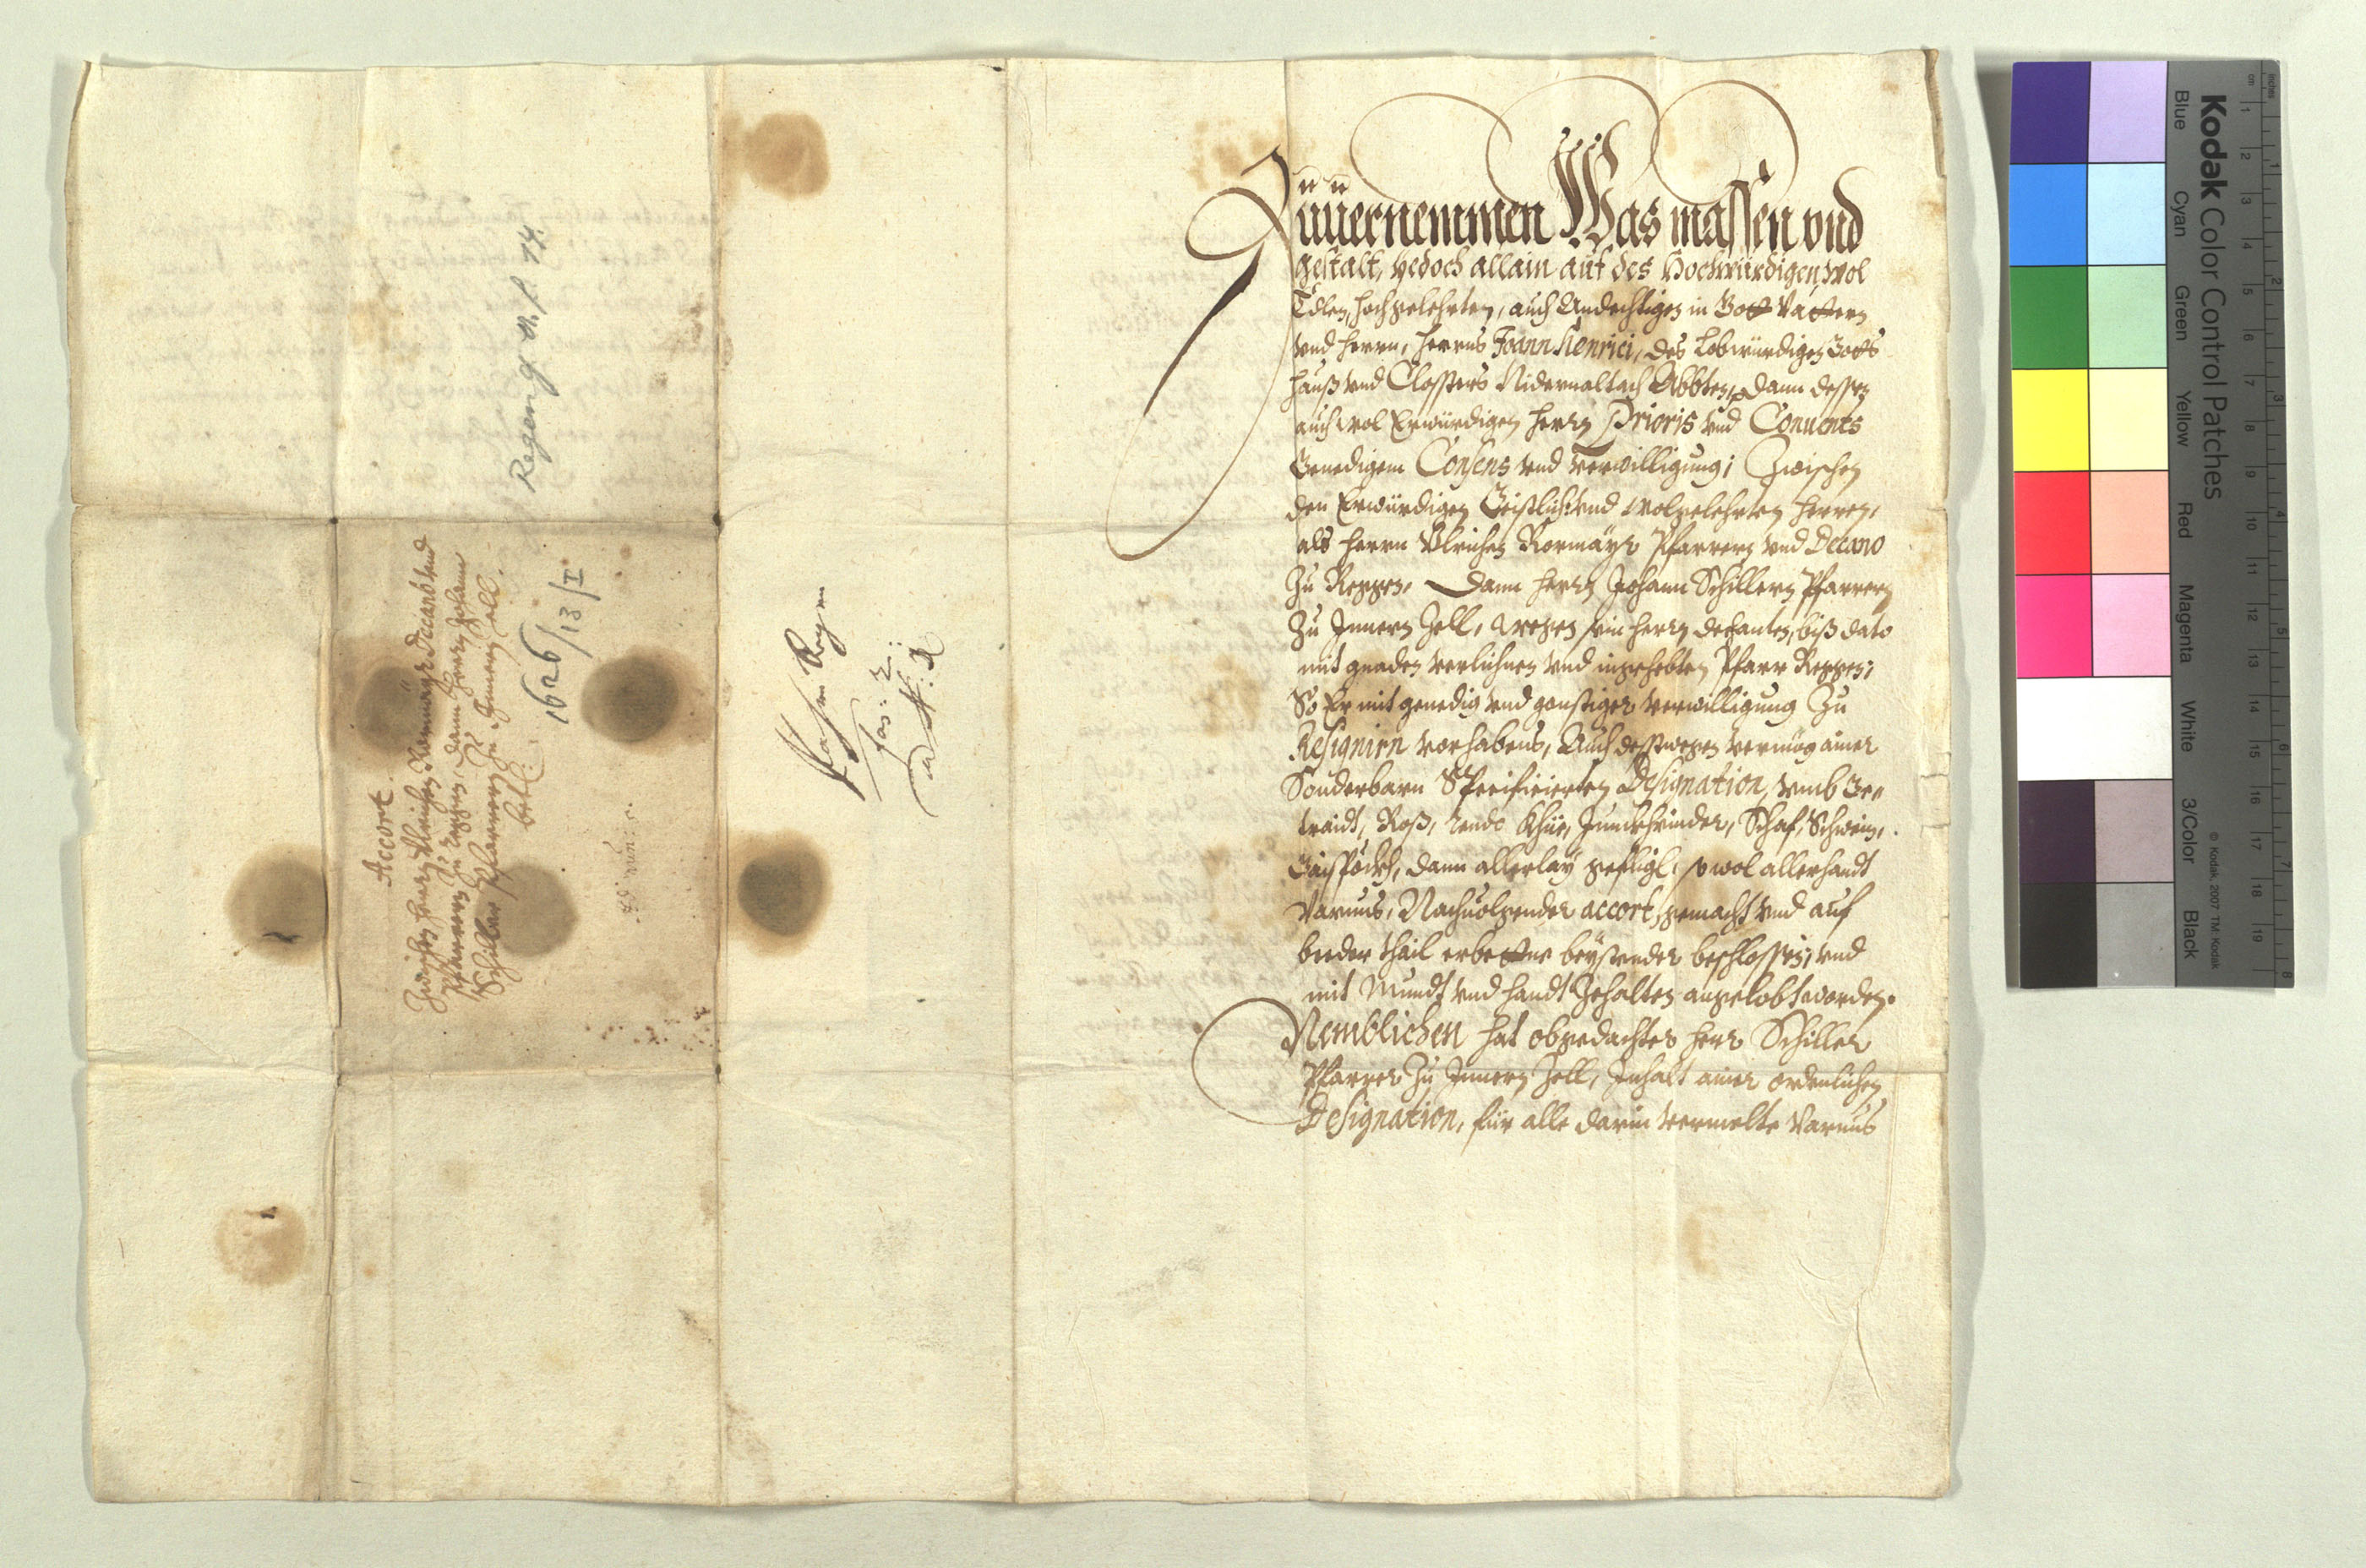 Zuuernemmen Was massen vnd
gestalt, yedoch allain auf des Hochwürdigen, wol
Edlen, hochgelehrten, auch Andechtigen in Gott Vattern
vnd herrn, herrns Joann Henrici, des Lobwürdigen Gotts
hauß vnd Closters Nidernaltach Abbten, dann dessen
auch wol Erwürdigen herrn Prioris vnd Conuents
Genedigem Consens vnd verwilligung; Zwischen
den Erwürdigen Geistlich vnd wolgelehrten herren,
als herrn Vlrichen Rormayr Pfarrern vnd Decano
Zu Regen, Dann herrn Johann Schillern Pfarrern
Zu Innern Zell, wegen sein herrn dechantes, biß dato
mit gnaden verlichnen vnd ingehebten Pfarr Regen;
So Er mit genedig vnd gonstiger verwilligung Zu
Resignirn vorhabens, Auch desstwegen vermög ainer
Sonderbarn Specificierten Designation, vmb Ge„
traidt, Roß, Khüe, Junckhrinder, Schaf, Schwein,
dann allerlay gefligl, sowol allerhandt
Varnus, Nachuolgender accort, gemacht vnd auf
beeder thail erbettne beystender beschlossen; vnd
mit Mundt vnd handt Zehalten angelobt worden.
Nemblichen hat obgedachter herr Schiller
Pfarrer Zu Innern Zell, Inhalt ainer ordenlichen
Designation, für alle darin vermelte Varnus
Pfarr Regen
Fas: 2:
Regen g. a. f. 14.
1626/13/I
Accort.
Zwischen herrn Vlrichen Rormayr Decano vnd
Pfarrern Zu Regen, dann herrn Johann
Schiller Pfarrern Zu Innern Zell.
bet: